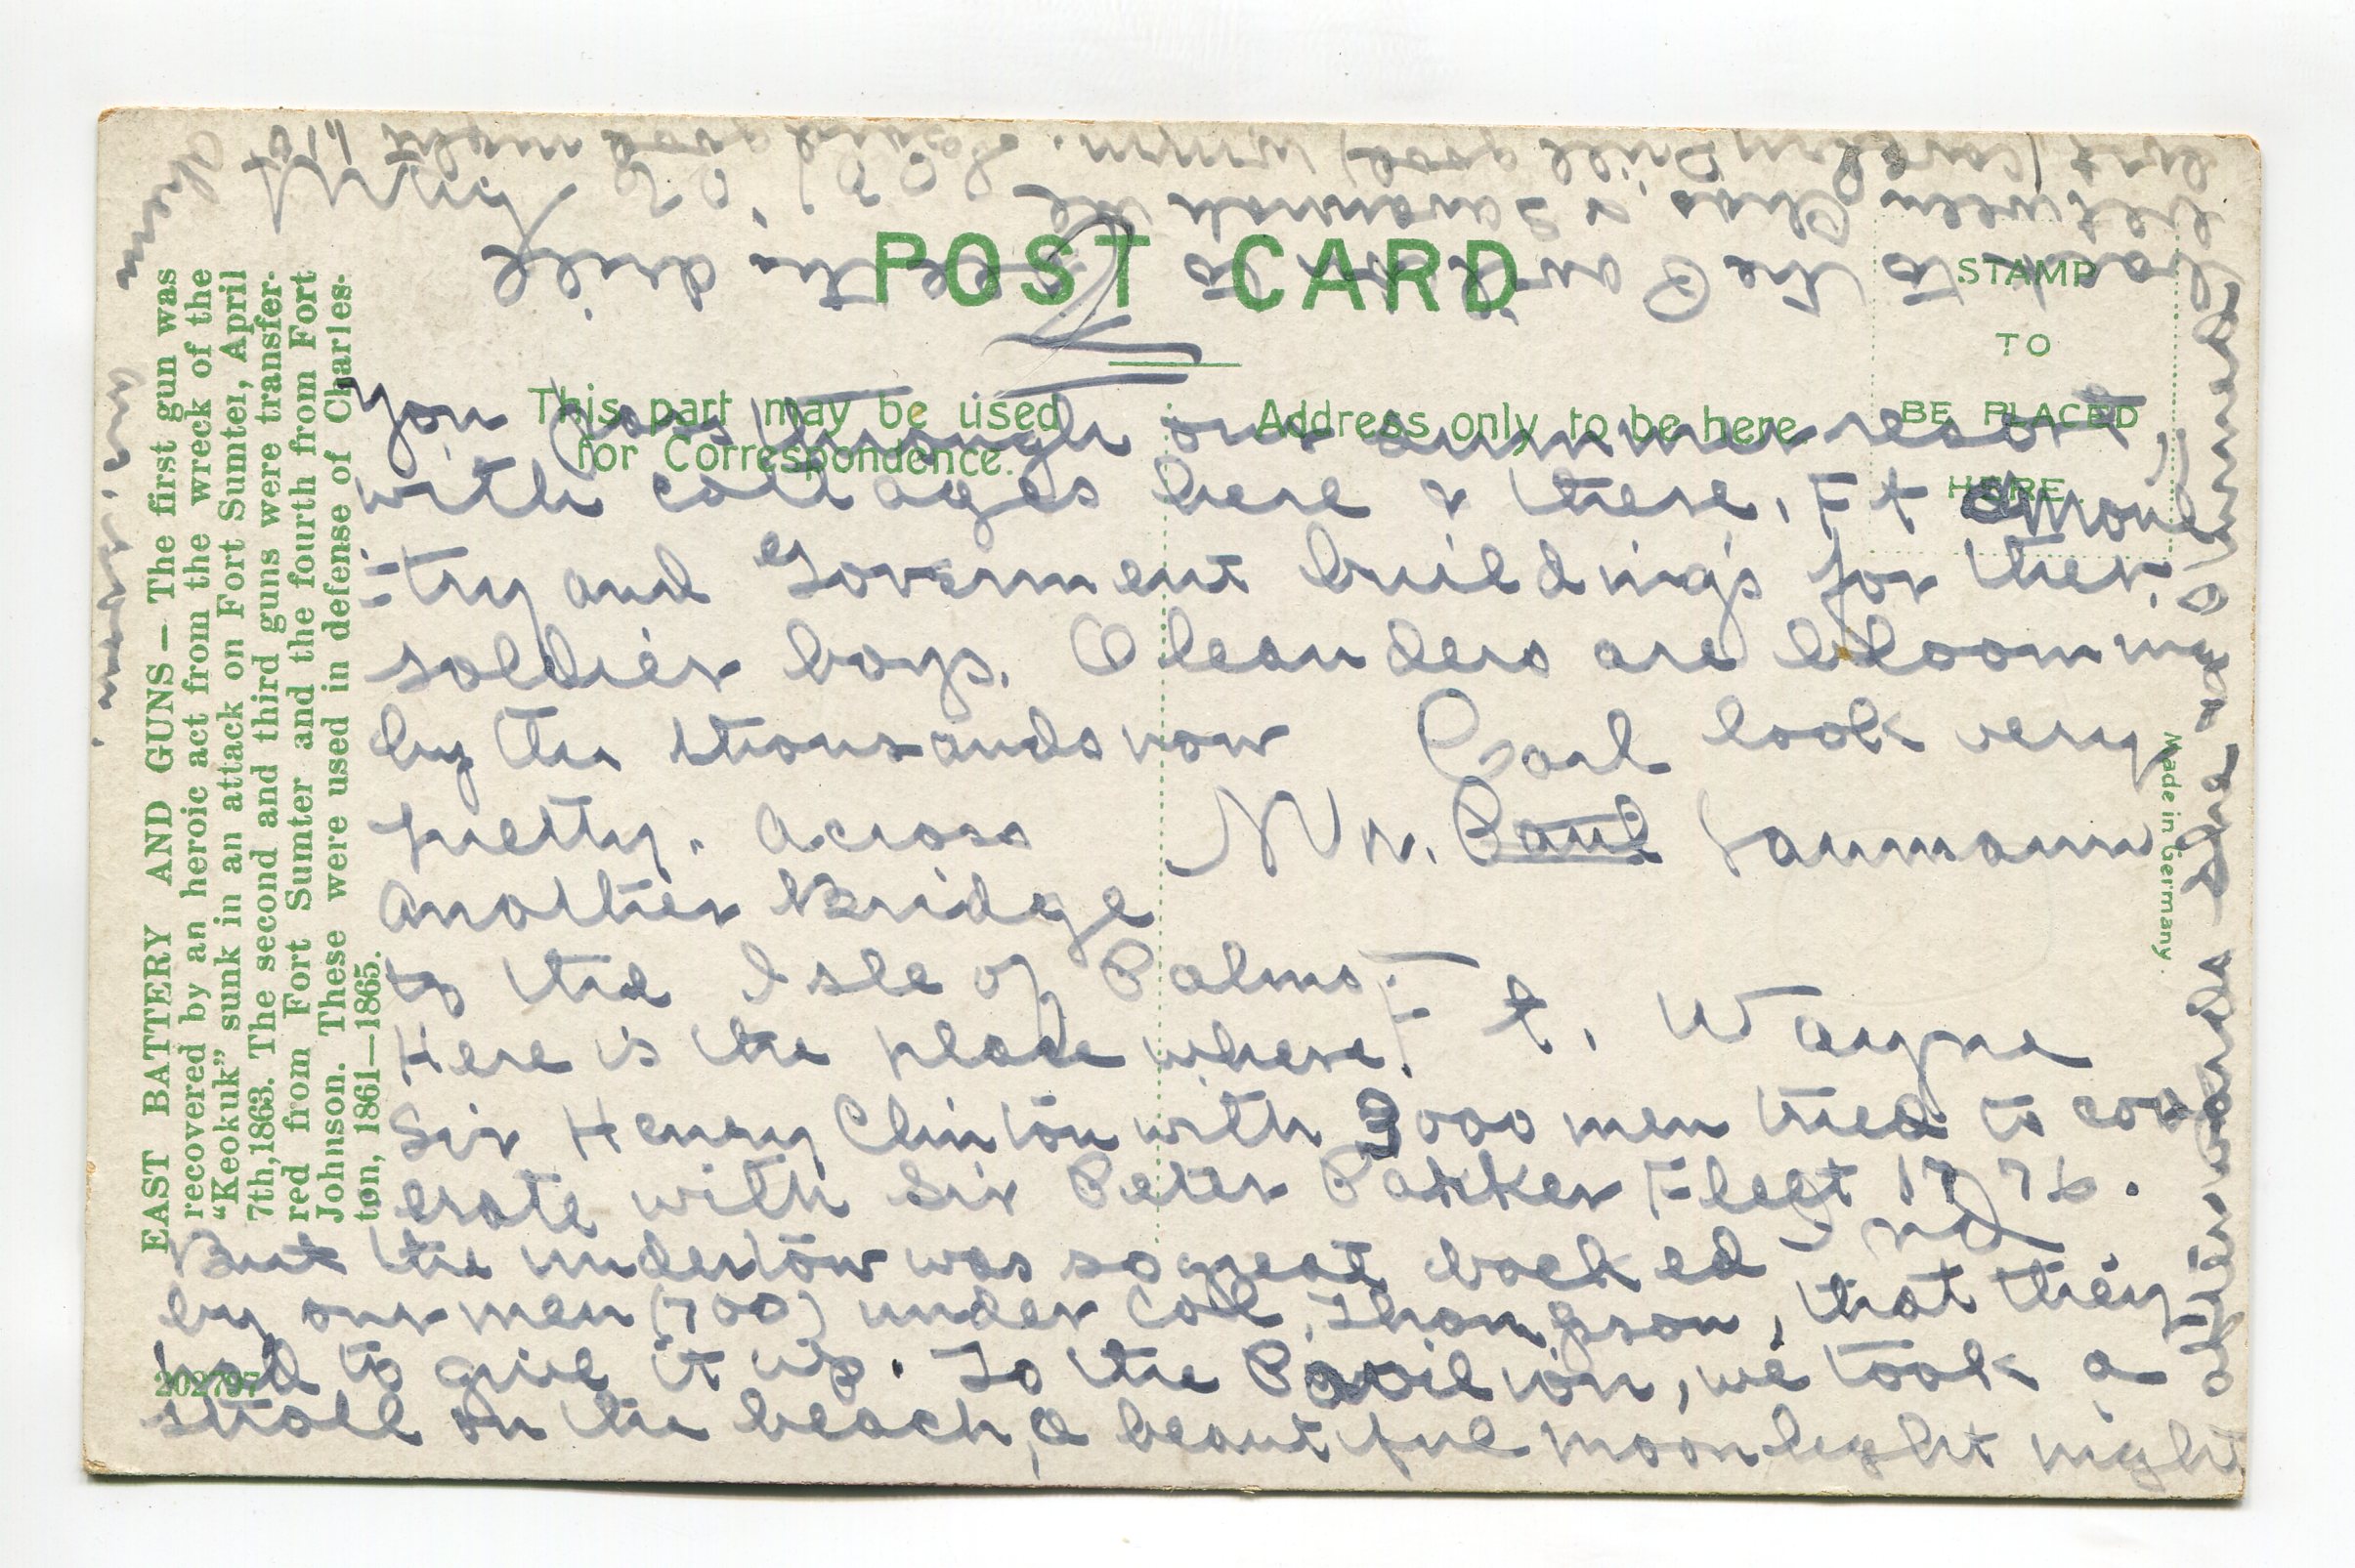 POST CARD
2
This part may be used
for Correspondence.
Address only to be here
STAMP
TO
BE PLACED
HERE.
Made in Germany.
EAST BATTERY AND GUNS — The first gun was
recovered by an heroic act from the wreck of the
"Keokuk" sunk in an attack on Fort Sumter, April
7th, 1863. The second and third guns were transfer-
red from Fort Sumter and the fourth from Fort
Johnson. These were used in defense of Charles-
ton, 1861—1865.
202797
You pass through our summer resort,
with cottages here & there, Ft
try and Goverment buildings for their
soldier boys. Oleanders are blooming
by the thousands now look very
pretty. Across
another Bridge
to the Isle of Palms.
Here is the place where
Sir Henry Clinton with 3000 men tried to coo
erate with Sir Peter Parker Fleet 1776.
But the undertow was so great backed
by our men (700) under Col. Thompson, that they
had to give it up. To the Pavilion, we took a
stroll on the beach, a beautiful moonlight night
Carl
Mr. Paul Laumann
Ft. Wayne
Ind
afterwards we
back to the to see the drill
between Chas. & Savannah
drill good
said good night